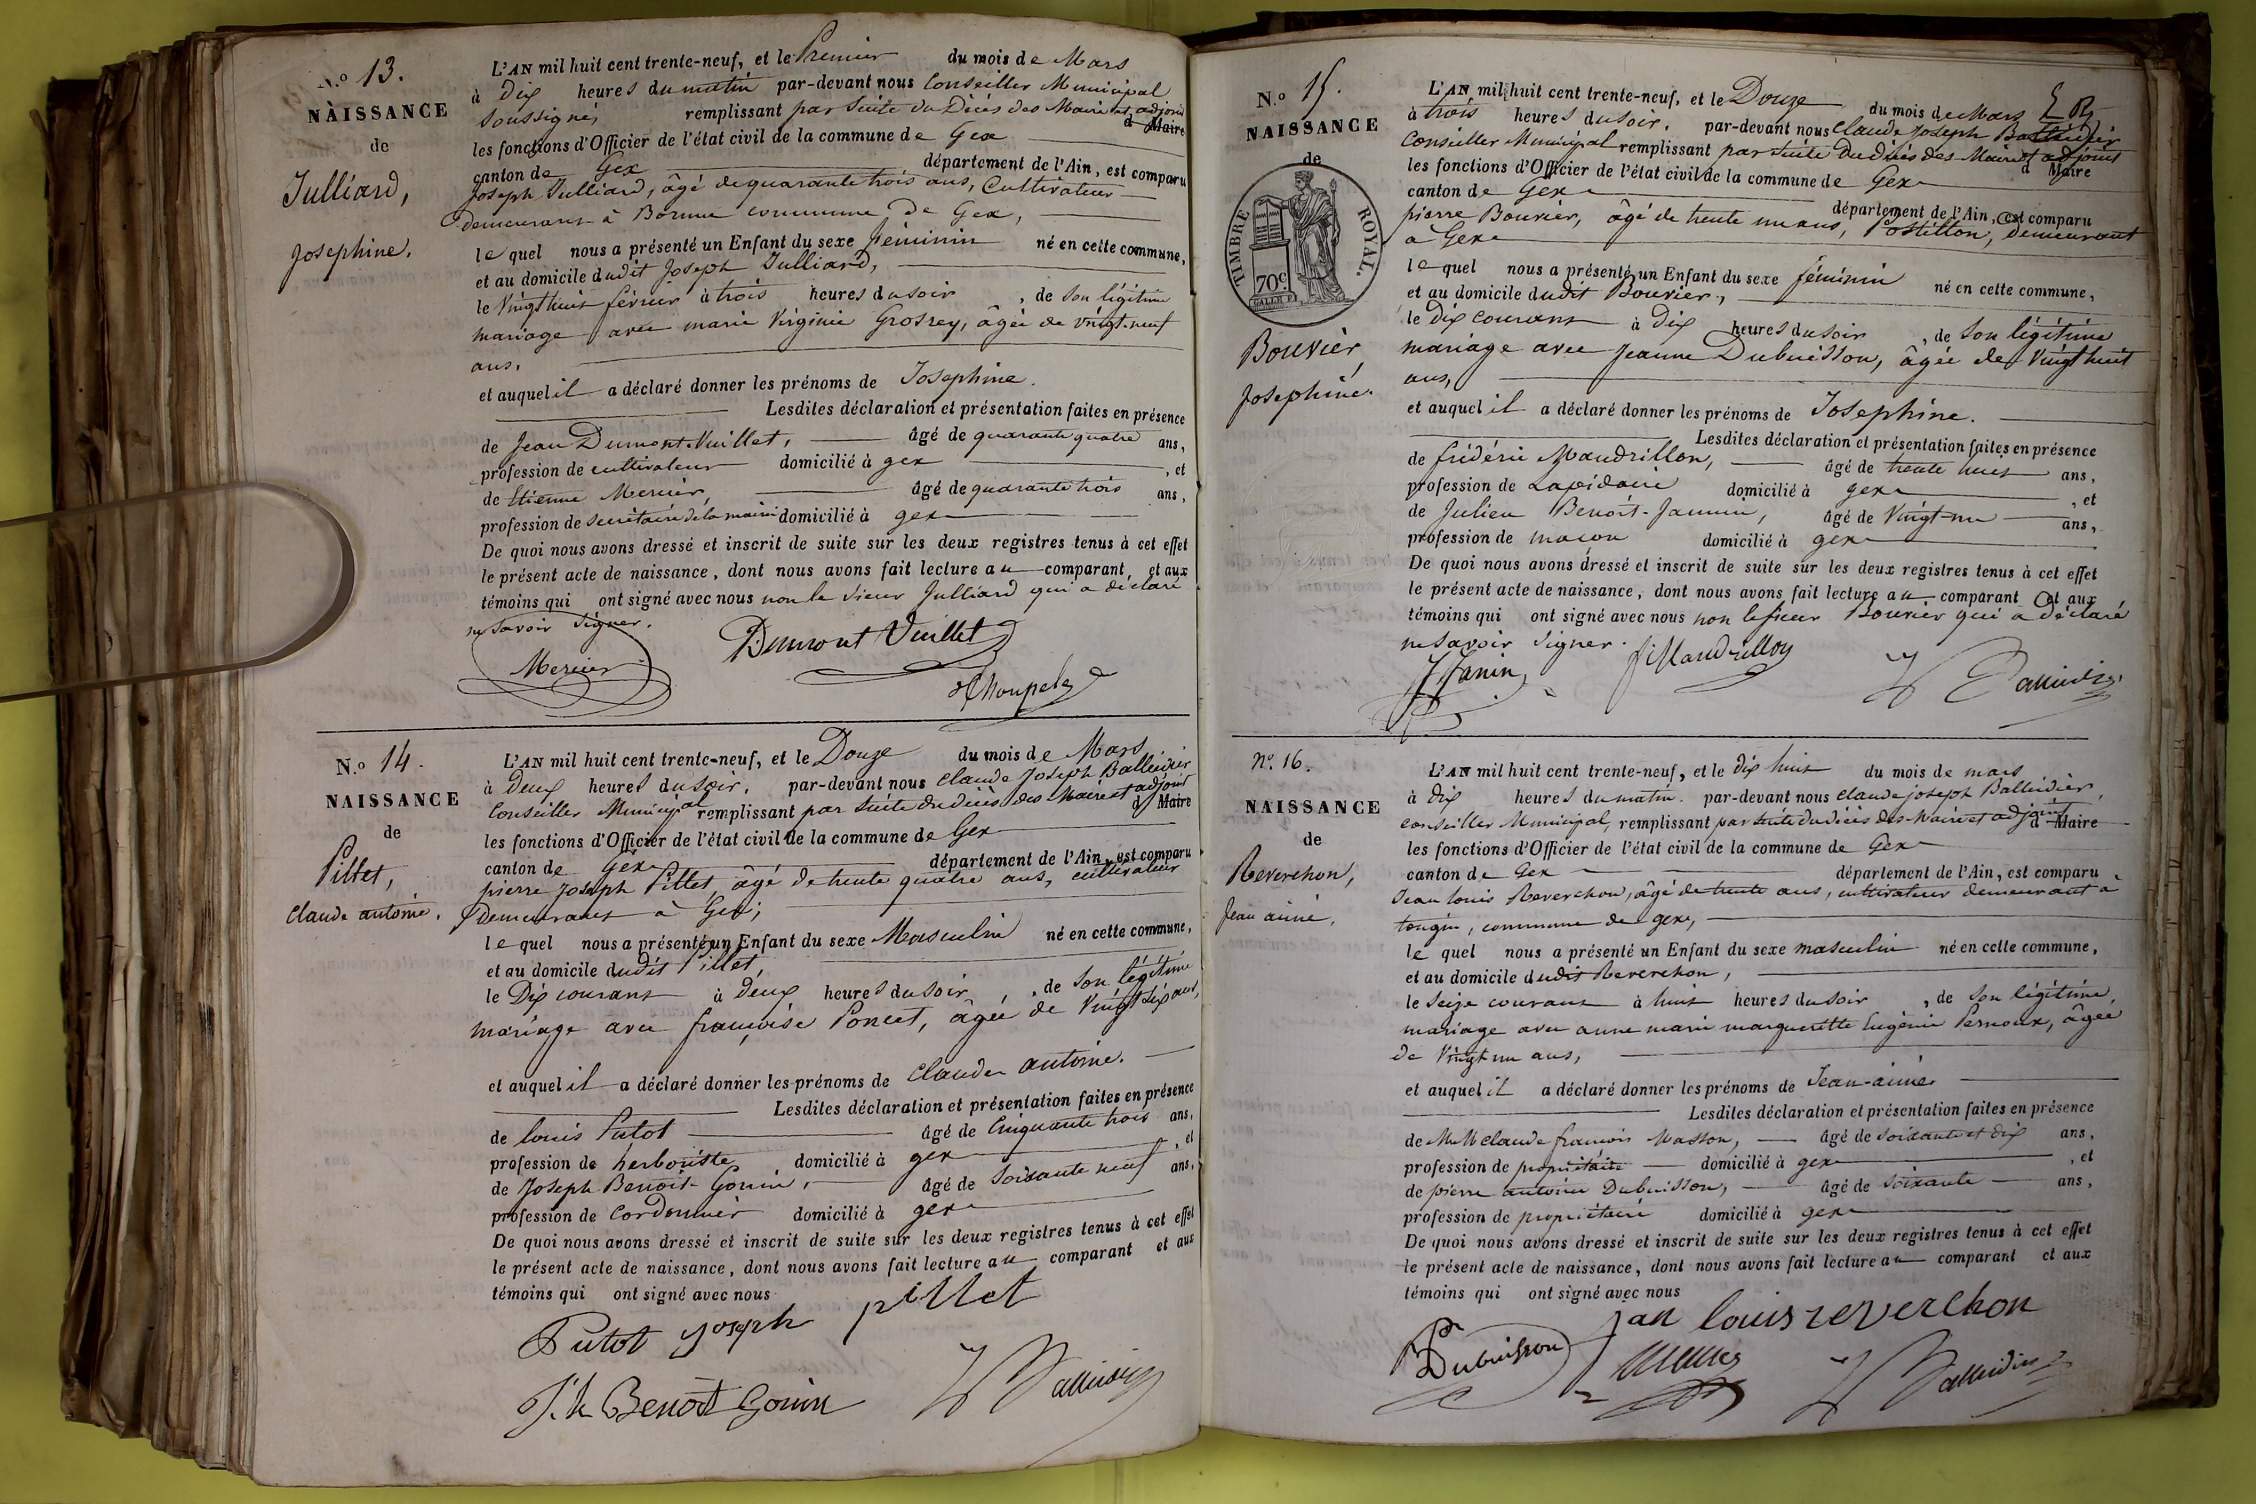 N.o 13.
NAISSANCE
de
Julliard,
Josephine.
L'AN mil huit cent trente-neuf, et le Premier du mois de Mars
à dix heures du matin par-devant nous Conseiller Municipal
Soussigné, remplissant par suite du Décès des Maire et adjoint
d Maire
les fonctions d'Officier de l'état civil de la commune de Gex
canton de Gex département de l'Ain, est comparu
Joseph Julliard, âgé de quarante trois ans, Cultivateur
demeurant à commune de Gex,
le quel nous a présenté un Enfant du sexe féminin né en cette commune,
et au domicile dudit Joseph Julliard,
le Vingt huit février à trois heures du soir, de son légitime
mariage avec marie Virginie Grosrey, âgée de vingt-neuf
ans.
et auquel il a déclaré donner les prénoms de Josephine.
Lesdites déclaration et présentation faites en présence
de Jean Dumont-Vuillet, âgé de quarante quatre ans,
profession de cultivateur domicilié à gex, et
de Etienne Mercier, âgé de quarante trois ans,
profession de secrétaire de la mairie domicilié à gex
De quoi nous avons dressé et inscrit de suite sur les deux registres tenus à cet effet
le présent acte de naissance, dont nous avons fait lecture au comparant, et aux
témoins qui ont signé avec nous non le sieur Julliard qui a déclaré
ne savoir signer.
Mercier Dumont Vuillet
N.o 14.
NAISSANCE
de
Pillet,
Claude antoine.
L'AN mil huit cent trente-neuf, et le Douze du mois de Mars
à Deux heures du soir, par-devant nous Claude Joseph Balleidier
Conseiller Municipal remplissant par suite du décès des Maire et adjoint
d Maire
les fonctions d'Officier de l'état civil de la commune de Gex
canton de Gex département de l'Ain, est comparu
pierre Joseph Pillet, âgé de trente quatre ans, cultivateur
demeurant à Gex,
le quel nous a présenté un Enfant du sexe Masculin né en cette commune,
et au domicile dudit Pillet,
le Dix courant à Deux heures du soir, de son légitime
mariage avec françoise Poncet, âgée de Vingt six ans,
et auquel il a déclaré donner les prénoms de Claude antoine.
Lesdites déclaration et présentation faites en présence
de louis Putot âgé de Cinquante trois ans,
profession de herboriste domicilié à gex, et
de Joseph Benoit-Gonin, âgé de Soixante neuf ans,
profession de Cordonnier domicilié à gex
De quoi nous avons dressé et inscrit de suite sur les deux registres tenus à cet effet
le présent acte de naissance, dont nous avons fait lecture au comparant et aux
témoins qui ont signé avec nous
Putot joseph pillet
J.h Benoit Gonin Balleidier
N.o 15.
NAISSANCE
de
TIMBRE ROYAL.
70c
Bouvier,
Josephine.
L'AN mil huit cent trente-neuf, et le Douze du mois de Mars
à trois heures du soir, par-devant nous Claude Joseph Balleidier
Conseiller Municipal remplissant par suite du décès des Maire et adjoint
d Maire
les fonctions d'Officier de l'état civil de la commune de Gex
canton de Gex département de l'Ain, est comparu
pierre Bouvier, âgé de trente un ans, Postillon, demeurant
a Gex
le quel nous a présenté un Enfant du sexe féminin né en cette commune,
et au domicile dudit Bouvier,
le Dix courant à Dix heures du soir, de son légitime
mariage avec Jeanne Dubuisson, âgée de Vingt huit
ans,
et auquel il a déclaré donner les prénoms de Josephine.
Lesdites déclaration et présentation faites en présence
de frédéric Mandrillon, âgé de trente huit ans,
profession de Lapidaire domicilié à gex, et
de Julien Benoit-Jannin, âgé de Vingt-un ans,
profession de maçon domicilié à gex
De quoi nous avons dressé et inscrit de suite sur les deux registres tenus à cet effet
le présent acte de naissance, dont nous avons fait lecture au comparant et aux
témoins qui ont signé avec nous non le sieur Bouvier qui a déclaré
ne savoir signer.
Janin f Mandrillon Balleidier
No. 16.
NAISSANCE
de
Reverchon,
Jean aimé,
L'AN mil huit cent trente-neuf, et le dix huit du mois de mars
à dix heures du matin. par-devant nous Claude joseph Balleidier,
conseiller Municipal, remplissant par suite du décès des Maire et adjoint
d Maire
les fonctions d'Officier de l'état civil de la commune de Gex
canton de Gex département de l'Ain, est comparu
Jean louis Reverchon, âgé de trente ans, cultivateur demeurant à
tougin, commune de gex,
le quel nous a présenté un Enfant du sexe masculin né en cette commune,
et au domicile dudit Reverchon,
le seize courant à huit heures du soir, de son légitime,
mariage avec anne marie margueritte Eugénie Pernoux, âgée
de Vingt un ans,
et auquel il a déclaré donner les prénoms de Jean-aimé
Lesdites déclaration et présentation faites en présence
de MM claude françois Masson, âgé de soixante et dix ans,
profession de propriétaire domicilié à gex, et
de pierre antoine Dubuisson, âgé de soixante ans,
profession de propriétaire domicilié à gex
De quoi nous avons dressé et inscrit de suite sur les deux registres tenus à cet effet
le présent acte de naissance, dont nous avons fait lecture au comparant et aux
témoins qui ont signé avec nous
jan louis reverchon
Dubuisson Balleidier